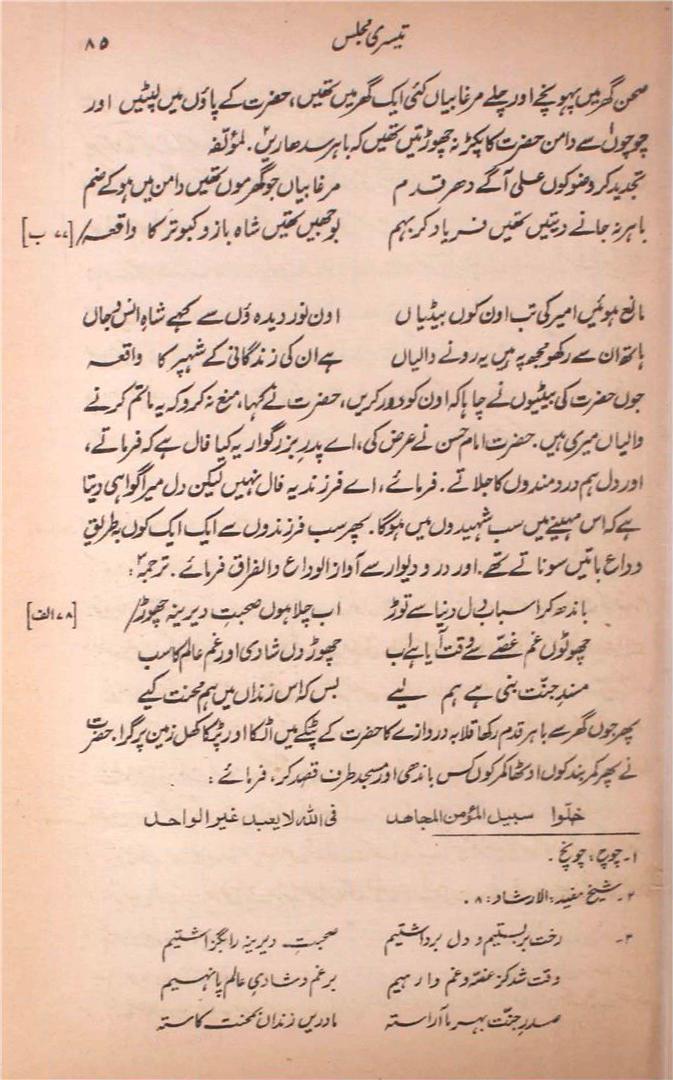 تیسری مجلس ۸۵
صحن گھر میں پہونچے اور چلے مرغابیاں کئی ایک گھر میں تھیں، حضرت کے پاؤں میں لپٹیں اور
چوچوں۱ سے دامن حضرت کا پکڑ نہ چھوڑتیں تھیں کہ باہر سدھاریں۲. لمؤلفہ
تجدید کر وضو کوں علی آگے دھر قدم مرغابیاں جو گھر موں تھیں دامن میں ہو کے ضم
باہر نہ جانے دیتیں تھیں فریاد کر بہم بوجھیں تھیں شاہ باز و کبوتر کا واقعہ/ [۷۷ ب]
مانع ہوئیں امیر کی تب اون کوں بیٹیاں اون نور دیدہ ؤں سے کہے شاہِ انس و جاں
ہاتھ ان سے رکھو مجھ پہ ہیں یہ رونے والیاں ہے ان کی زندگانی کے شہپر کا واقعہ
جوں حضرت کی بیٹیوں نے چاہا کہ اون کو دور کریں، حضرت نے کہا، منع نہ کرو کہ یہ ماتم کرنے
والیاں میری ہیں. حضرت امام حسن نے عرض کی، اے پدر بزرگوار یہ کیا فال ہے کہ فرماتے،
اور دل ہم دردمندوں کا جلاتے. فرمائے، اے فرزند یہ فال نہیں لیکن دل میرا گواہی دیتا
ہے کہ اس مہینے میں سب شہیدوں میں ہو گا. پھر سب فرزندوں سے ایک ایک کوں بہ طریقِ
وداع باتیں سوناتے تھے. اور در و دیوار سے آواز الوداع والفراق فرمائے. ترجمہ۳:
باندھ کر اسباب دل دنیا سے توڑ اب چلا ہوں صحبت دیرینہ چھوڑ/ [۷۸ الف]
چھوٹوں غم غصے سے وقت آیا ہے اب چھوڑ دوں شادی اور غم عالم کا سب
مسندِ جنّت بنی ہے ہم لیے بس کہ اس زنداں میں ہم محنت کیے
پھر جوں گھر سے باہر قدم رکھا قلابہ دروازے کا حضرت کے پٹکے میں اٹکا اور پٹکا کھل زمین پر گرا. حضرت
نے پھر کمربند کوں اوٹھا کمر کوں کس باندھی اور مسجد طرف قصد کر، فرمائے:
خلّوا سبیل المؤمن المجاهد فی اللّٰه لا یعبد غیر الواحد
۱۔ چوچ: چونچ.
۲۔ شیخ مفید: الارشاد: ۸.
۳۔ رخت بربستیم و دل برداشتیم صحبتِ دیرینہ را بگزاشتیم
وقت شد کز غصّہ و غم وا رہیم بر غم و شادیِ عالم پا نہیم
صدرِ جنّت بہر ما آراستہ ما دریں زنداں بمحنت کاستہ